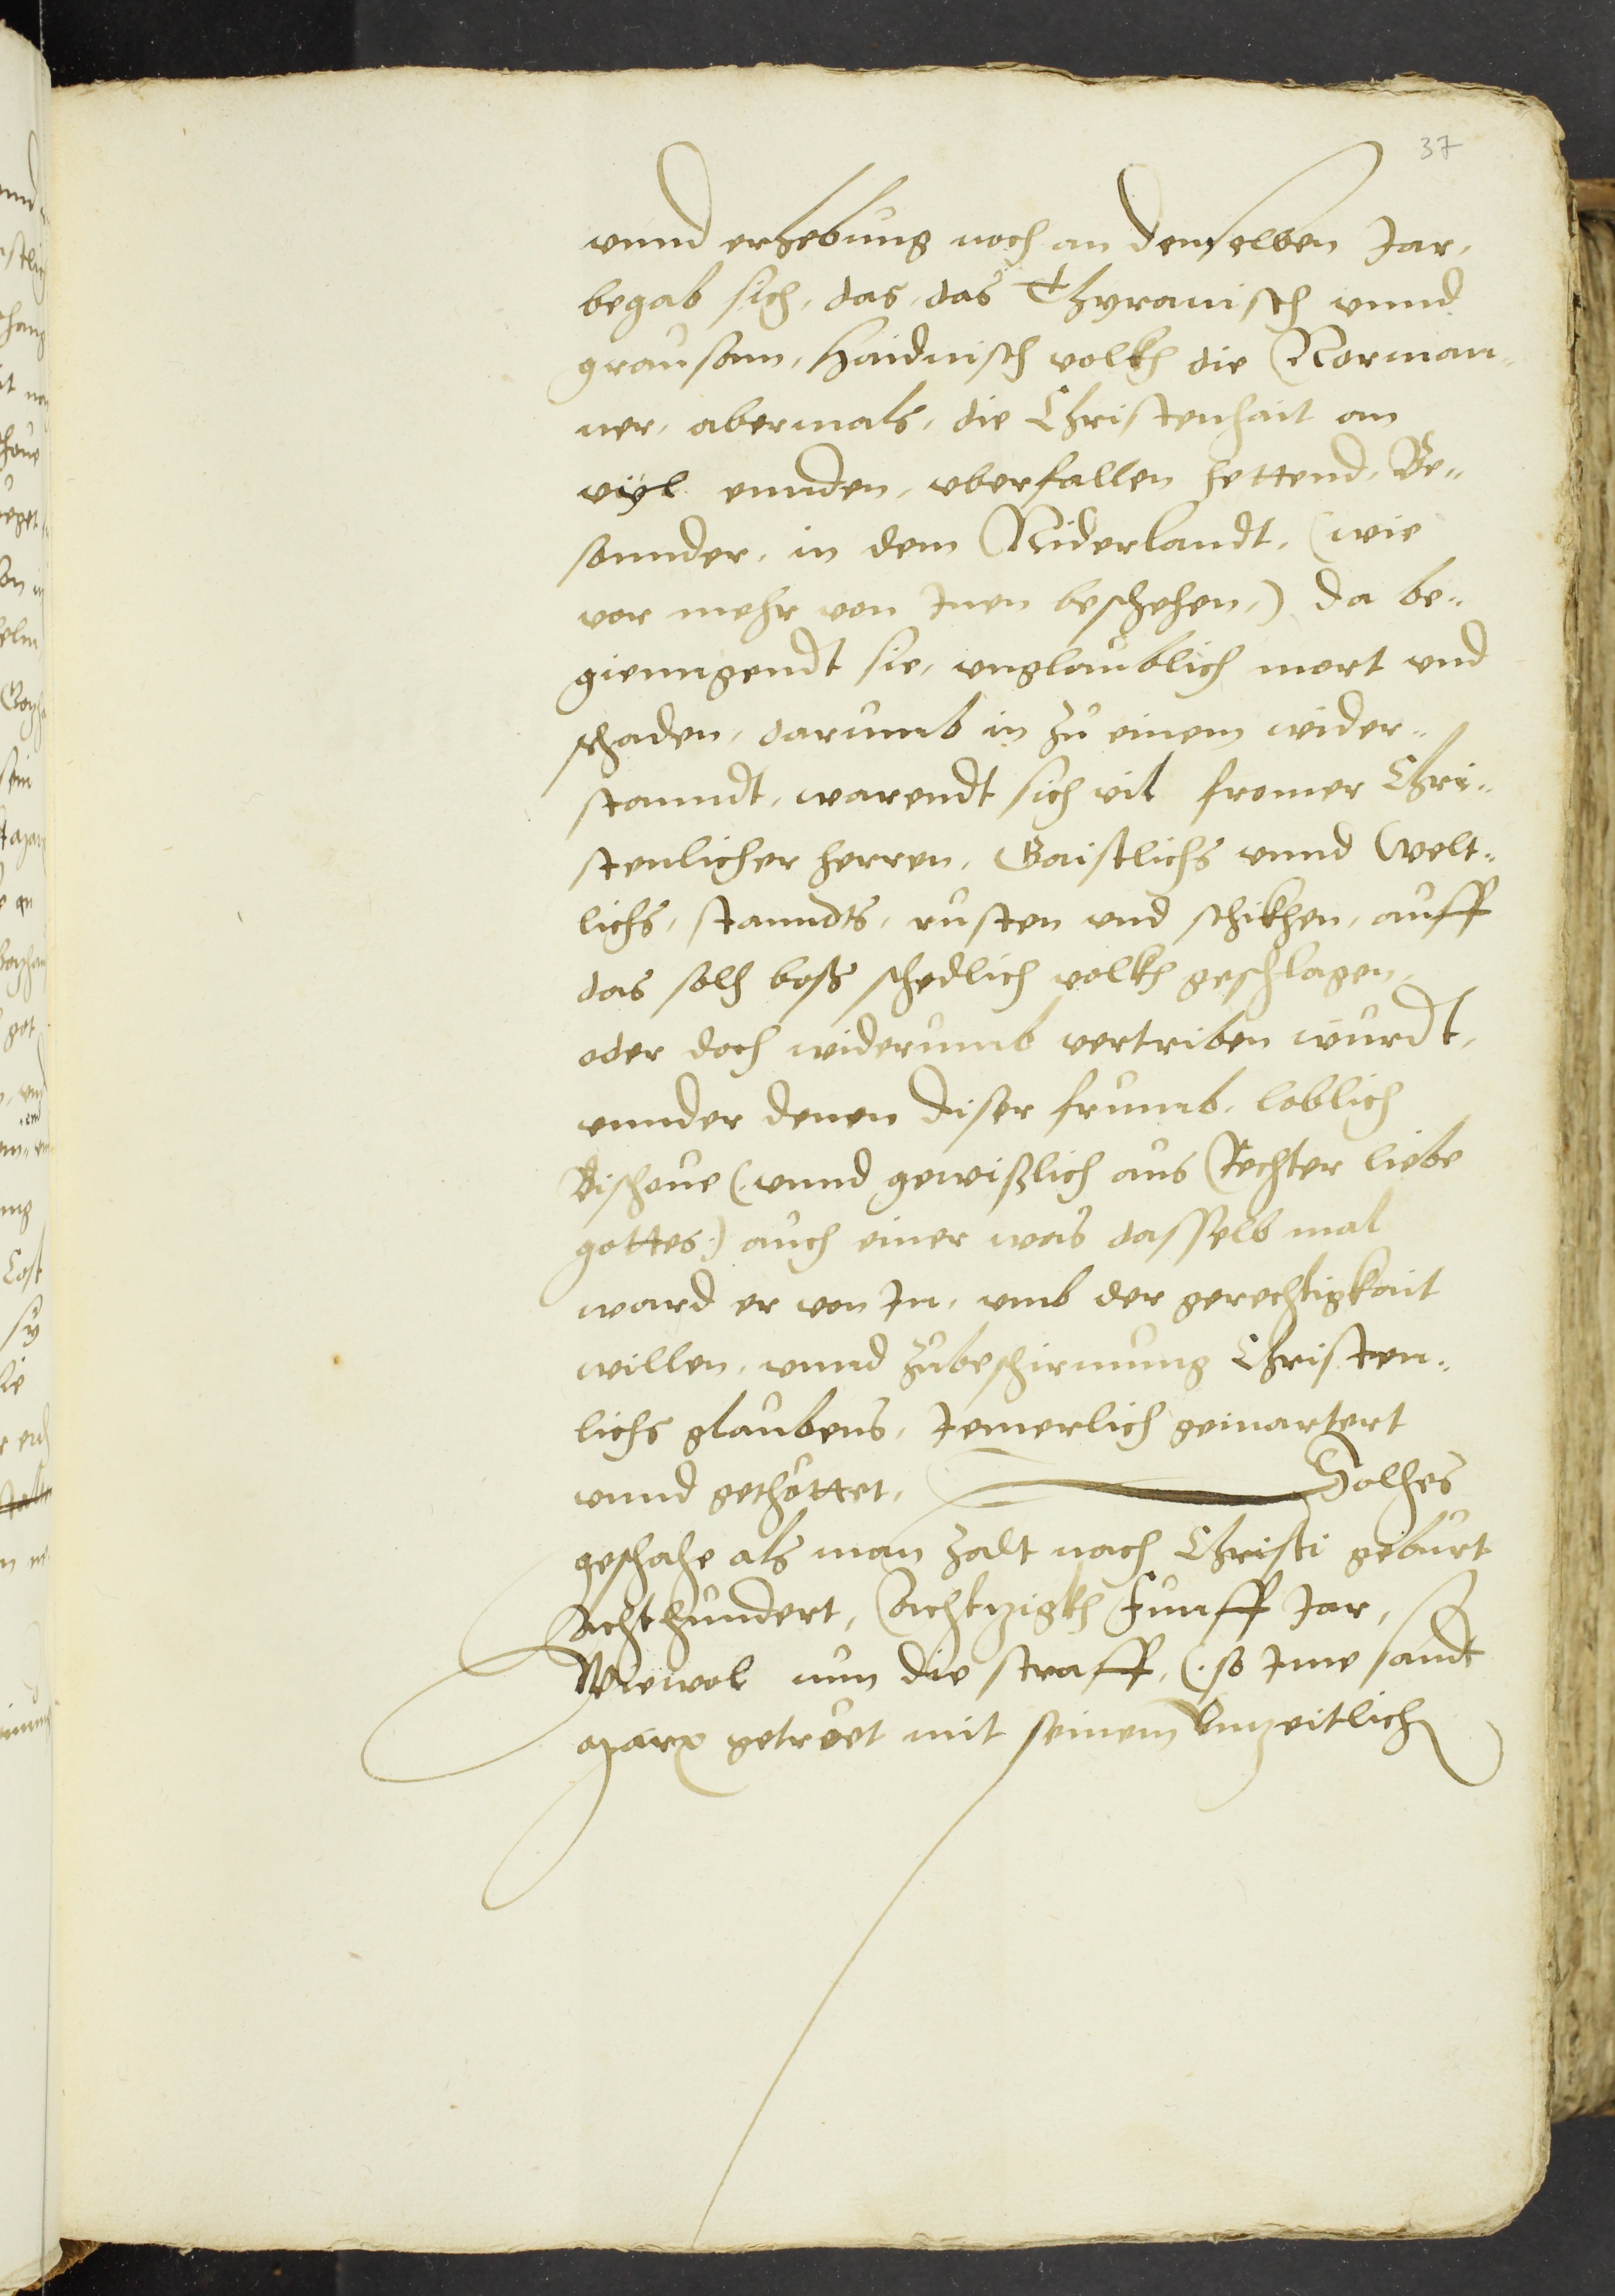 37
vnnd erhebung noch an demselben Jar,
begab sich, das, das Thyranisch vnnd
grausam, Haidnisch volkh die Norman¬
ner, abermals, die Christenhait an
vyl ennden, vberfallen hettend, Be¬
sonnder, in dem Niderlandt, (wie
vor mehr von Inen beschehen,) da be¬
gienngendt sie, vnglaublich mort vnd
schaden, darumb in zu einem wider¬
stanndt, warendt sich vil fromer Chri¬
stenlicher herren, Gaistlichs vnnd Welt¬
lichs, stanndts, rusten vnd schikhen, auff
das solch boß schedlich volkh geschlagen,
oder doch widerumb vertriben wurdt,
vnnder denen diser frumb, loblich
Bischoue (vnnd gewißlich aus Rechter liebe
gottes) auch einer was dasselb mal
ward er von In, vmb der gerechtigkait
willen, vnnd zubeschirmung Christen¬
lichs glaubens, Jemerlich gemartert
vnnd gethöttet, Solhes
geschahe als man zalt nach Christi geburt
Achthundert, Achtzigkh Funff Jar,
Wiewol nun die straff, (so Ime sandt
Marx getröet mit seinem vnzeitlich